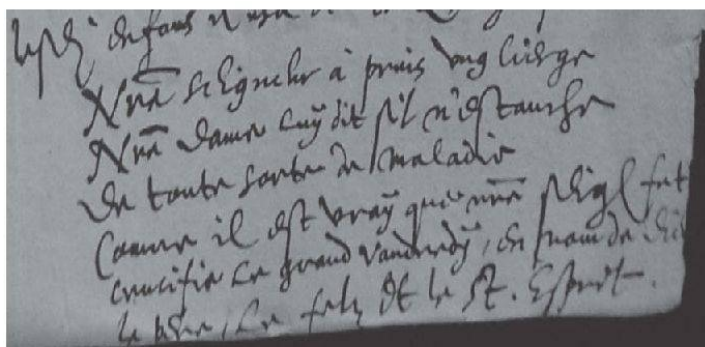 enfans
Nre seigneur a prins ung cierge
Nre dame luy dit s'il n'estanche
de toute sorte de maladie
Comme il est vray que nre seigr fut
crucifié le grand vandredy, du nom de dieu
le pere, le filz et le St. Esprit.